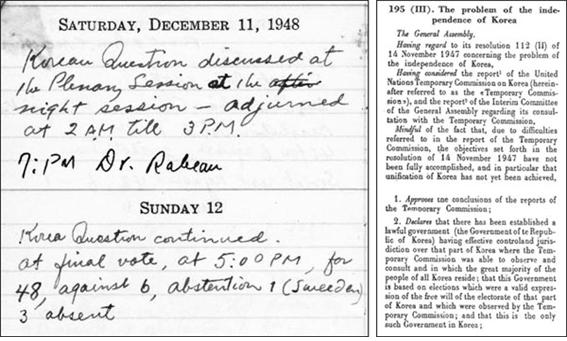 SATURDAY, DECEMBER 11, 1948
Korean Question discussed at
the Plenary Session at the after
night session – adjourned
at 2 AM. till 3 P.M.
7:PM Dr. Rabeau
SUNDAY 12
Korea Question continued.
at final vote, at 5:00 PM, for
48, against 6, abstention 1 (Sweeden)
3 absent
195 (III). The problem of the inde-
pendence of Korea
The General Assembly,
Having regard to its resolution 112 (II) of
14 November 1947 concerning the problem of
the independence of Korea,
Having considered the report¹ of the United
Nations Temporary Commission on Korea (herein-
after referred to as the «Temporary Commis-
sion»), and the report² of the Interim Committee
of the General Assembly regarding its consul-
tation with the Temporary Commission,
Mindful of the fact that, due to difficulties
referred to in the report of the Temporary
Commission, the objectives set forth in the
resolution of 14 November 1947 have not
been fully accomplished, and in particular that
unification of Korea has not yet been achieved,
1. Approves the conclusions of the reports of
the Temporary Commission;
2. Declares that there has been established a
lawful government (the Government of te Repub-
lic of Korea) having effective controland juris-
diction over that part of Korea where the Tem-
porary Commission was able to observe and
consult and in which the great majority of the
people of all Korea reside; that this Government
is based on elections which were a valid expres-
sion of the free will of the electorate of that part
of Korea and which were observed by the Tem-
porary Commission; and that this is the only
such Government in Korea;